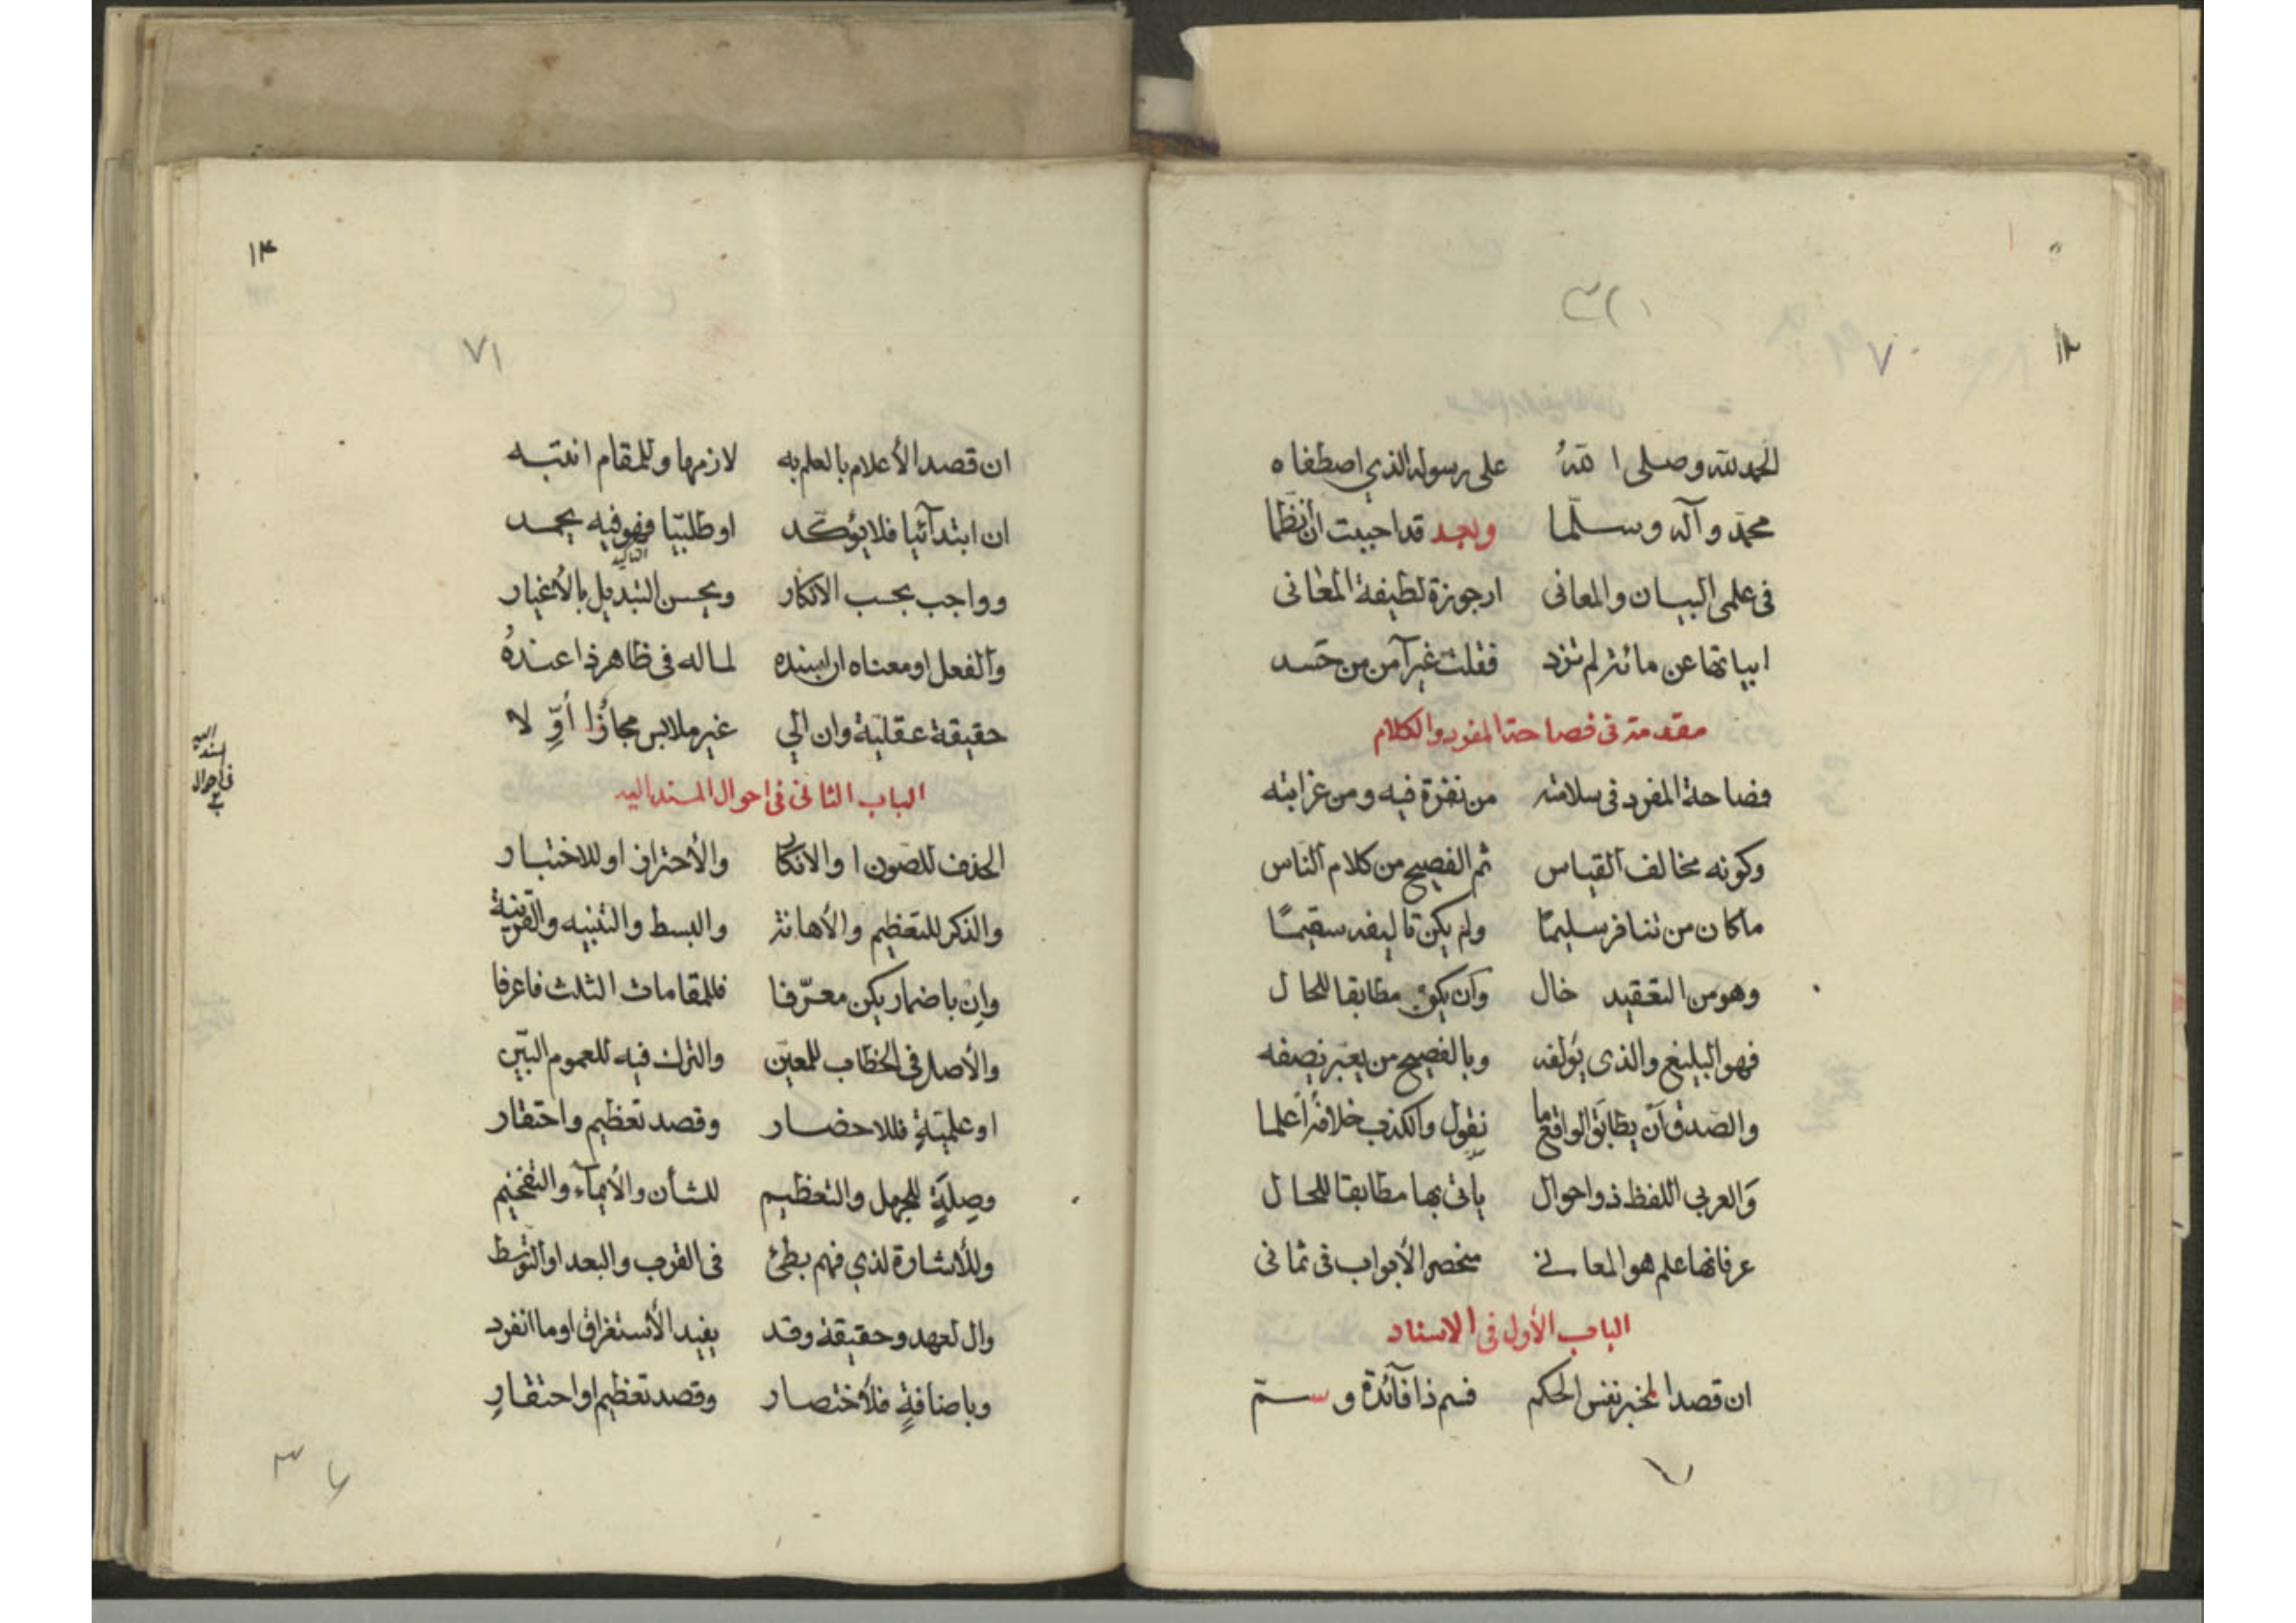 ١٢
٧٠
الحمد لله وصلى الله على رسوله الذي اصطفاه
محمد وآله وسلّما وبعد قد احببت أن نظما
فى علمى البيان والمعانى ارجوزة لطيفة المعانى
ابياتها عن مائة لم تزد فقلت غير آمن من حسد
مقدمة فى فصاحة المفرد والكلام
فصاحة المفرد فى سلامته من نفرة فيه ومن غرابته
وكونه مخالف القياس ثم الفصيح من كلام الناس
ما كان من تنافر سليمًا ولم يكن تاليفه سقيمًا
وهو من التعقيد خال وان يكون مطابقا للحال
فهو البليغ والذى يؤلفه وبالفصيح من يعبر نصفه
والصدق أن يطابق الواقع ما نقول والكذب خلافه اعلما
والعربى اللفظ ذو احوال يأتى بها مطابقا للحال
عرفانها علم هو المعانى منحصر الأبواب فى ثمانى
الباب الأول فى الاسناد
ان قصد المخبر نفس الحكم فسم ذا فآئدة وسمّ
١٣
٧١
ان قصد الأعلام بالعلم به لازمها وللمقام انتبه
ان ابتدآئيا فلا يؤكّد او طلبيّا فهو فيه يحمد
التاكيد
وواجب بحسب الانكار ويحسن التبديل بالأغيار
والفعل او معناه ان اسنده لما له فى ظاهر ذا عنده
حقيقة عقليّة وان الي غير ملابس مجاز ذا أوّلا
الباب الثانى فى احوال المسند اليه
فى احوال المسند اليه
الحذف للصون او الانكار والأحتراز او للاختبار
والذكر للتعظيم والأهانة والبسط والتنبيه والقرينة
وان باضمار يكن معرّفا فللمقامات الثلث فاعرفا
والأصل فى الخطاب للمعيّن والترك فيه للعموم البيّن
او علميّةٍ فللاحضار وقصد تعظيم واحتقار
وصلةٍ للجهل والتعظيم للشأن والأيمآء والتفخيم
وللأشارة لذي فهم بطئ فى القرب والبعد او التوسط
وال لعهد وحقيقة وقد يفيد الأستغراق او ما انفرد
وباضافةٍ فلأختصار وقصد تعظيم او احتقارِ